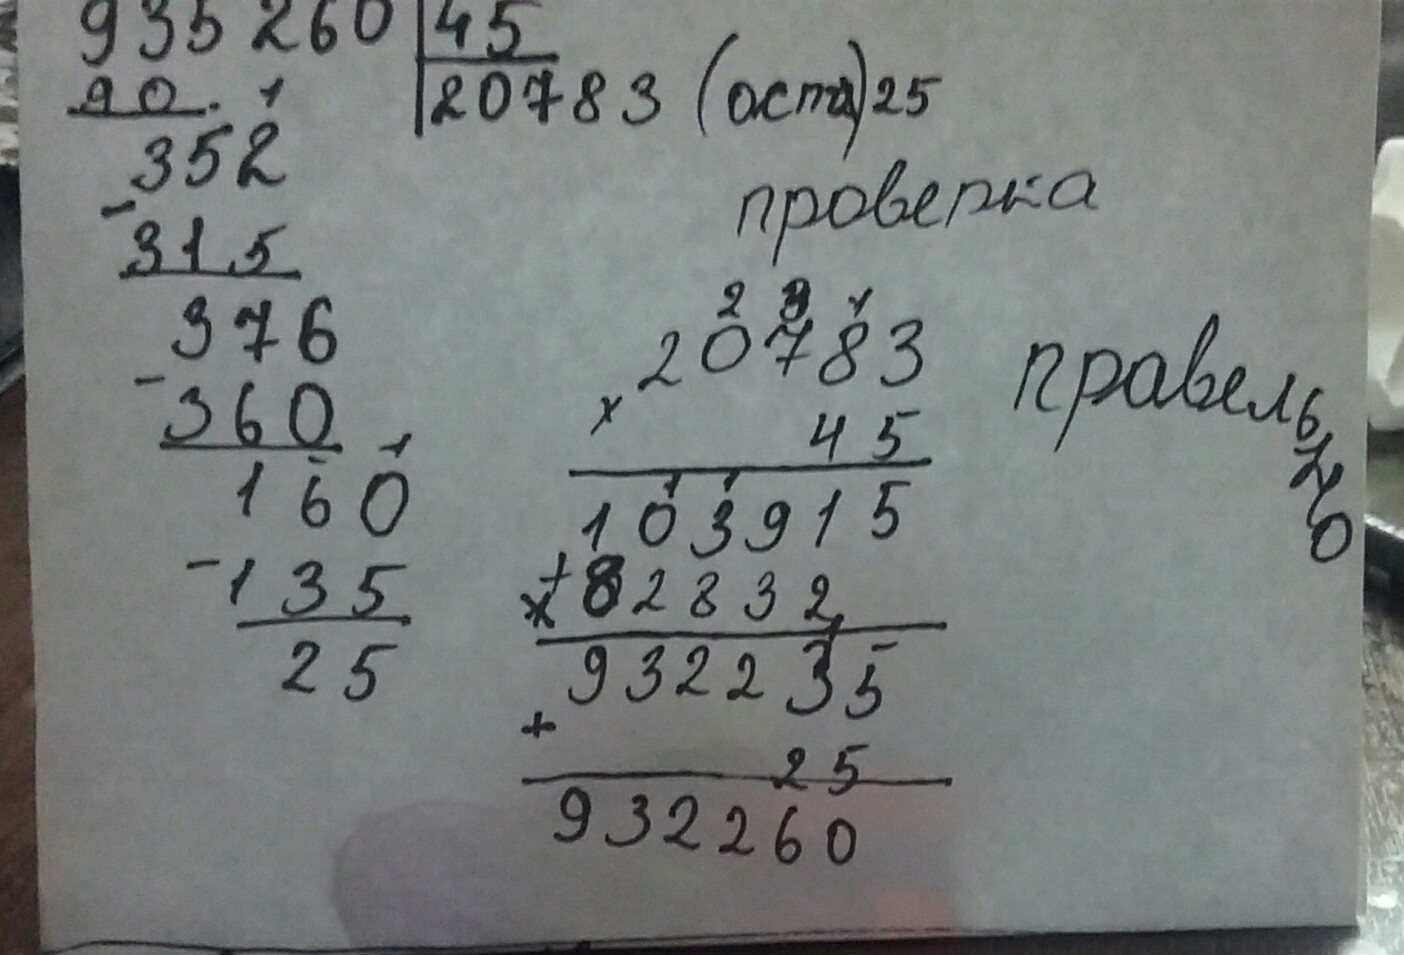 935260 45
90 20783 (оста) 25
352
315
376
360
160
-135
25
проверка
20783
× 45
103915
+ 82832
932235
+
25
932260
правельно